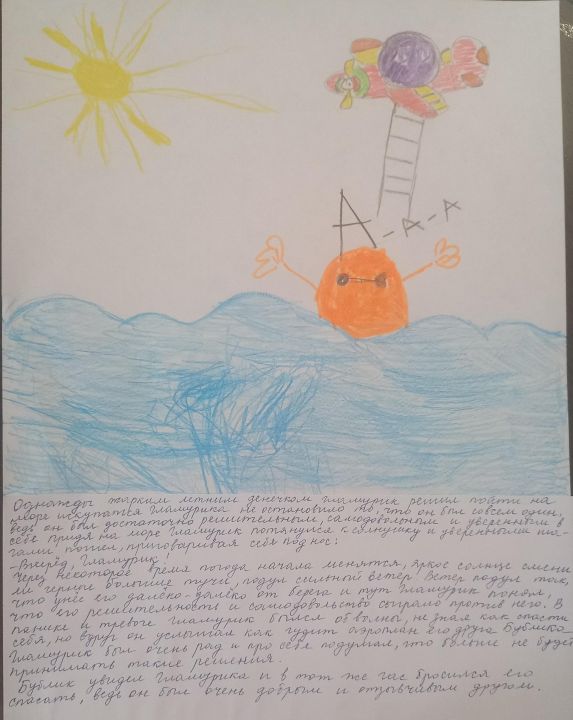 А-А-А
Однажды жарким летним денечком Гламурик решил пойти на
море искупатся Гламурика не остановило то, что он был совсем один,
ведь он был достаточно решительным, самодовольным и уверенным в
себе придя на море Гламурик потянулся к солнушку и уверенными ша-
гами пошел, приговаривая себе под нос:
-Вперёд, Гламурик!
Через некоторое время погода начала менятся, яркое солнце смени
ли черные большие тучи, подул сильный ветер. Ветер подул так,
что унес его далеко-далёко от берега и тут Гламурик понял,
что его решительность и самодовольство сыграло против него. В
панике и тревоге Гламурик бился об волны, не зная как спасти
себя, но вдруг он услышал как гудит аэроплан его друга Бублика
Гламурик был очень рад и про себя подумал, что больше не будет
принимать такие решения.
Бублик увидел Гламурика и в тот же час бросился его
спасать, ведь он был очень добрым и отзывчивым другом.